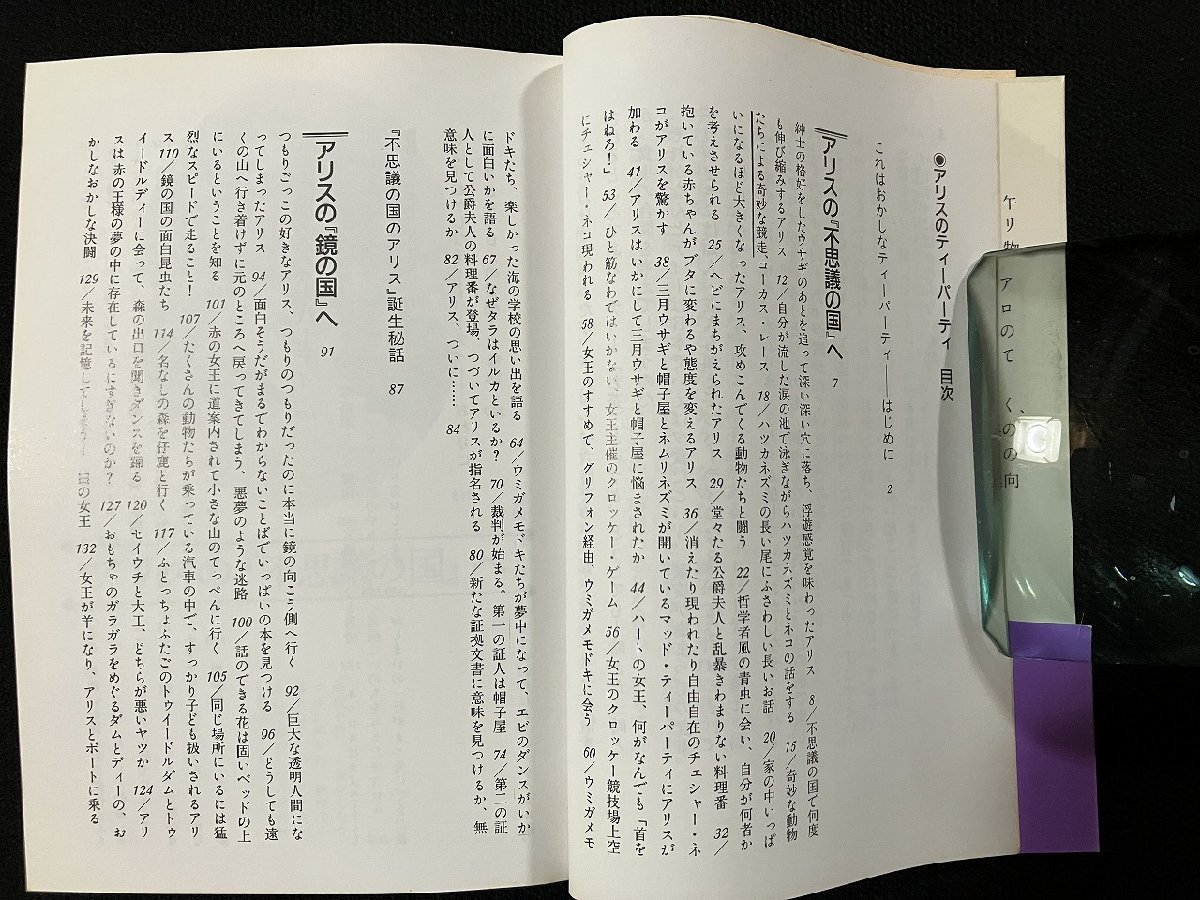 ●アリスのティーパーティ 目次
これはおかしなティーパーティ――はじめに 2
アリスの『不思議の国』へ 7
紳士の格好をしたウサギのあとを追って深い深い穴に落ち、浮遊感覚を味わったアリス 8/不思議の国で何度
も伸び縮みするアリス 12/自分が流した涙の池で泳ぎながらハツカネズミとネコの話をする 15/奇妙な動物
たちによる奇妙な競走、コーカス・レース 18/ハツカネズミの長い尾にふさわしい長いお話 20/家の中いっぱ
いになるほど大きくなったアリス、攻めこんでくる動物たちと闘う 22/哲学者風の青虫に会い、自分が何者か
を考えさせられる 25/ヘビにまちがえられたアリス 29/堂々たる公爵夫人と乱暴きわまりない料理番 32/
抱いている赤ちゃんがブタに変わるや態度を変えるアリス 36/消えたり現われたり自由自在のチェシャー・ネ
コがアリスを驚かす 38/三月ウサギと帽子屋とネムリネズミが開いているマッド・ティーパーティにアリスが
加わる 41/アリスはいかにして三月ウサギと帽子屋に悩まされたか 44/ハートの女王、何がなんでも「首を
はねろ!」 53/ひと筋なわではいかない、女王主催のクロッケー・ゲーム 56/女王のクロッケー競技場上空
にチェシャー・ネコ現われる 58/女王のすすめで、グリフォン経由、ウミガメモドキに会う 60/ウミガメモ
ドキたち、楽しかった海の学校の思い出を語る 64/ウミガメモドキたちが夢中になって、エビのダンスがいか
に面白いかを語る 67/なぜタラはイルカといるか? 70/裁判が始まる。第一の証人は帽子屋 74/第二の証
人として公爵夫人の料理番が登場、つづいてアリスが指名される 80/新たな証拠文書に意味を見つけるか、無
意味を見つけるか 82/アリス、ついに…… 84
『不思議の国のアリス』誕生秘話 87
アリスの『鏡の国』へ 91
つもりごっこの好きなアリス、つもりのつもりだったのに本当に鏡の向こう側へ行く 92/巨大な透明人間にな
ってしまったアリス 94/面白そうだがまるでわからないことばでいっぱいの本を見つける 96/どうしても遠
くの山へ行き着けずに元のところへ戻ってきてしまう、悪夢のような迷路 100/話のできる花は固いベッドの上
にいるということを知る 101/赤の女王に道案内されて小さな山のてっぺんに行く 105/同じ場所にいるには猛
烈なスピードで走ること! 107/たくさんの動物たちが乗っている汽車の中で、すっかり子ども扱いされるアリ
ス 110/鏡の国の面白昆虫たち 114/名なしの森を仔鹿と行く 117/ふとっちょふたごのトウイードルダムとトゥ
イードルディーに会って、森の出口を聞きダンスを踊る 120/セイウチと大工、どちらが悪いヤツか 124/アリ
スは赤の王様の夢の中に存在しているにすぎないのか? 127/おもちゃのガラガラをめぐるダムとディーの、お
かしなおかしな決闘 129/未来を記憶してしまう 女王 132/女王が羊になり、アリスとボートに乗る